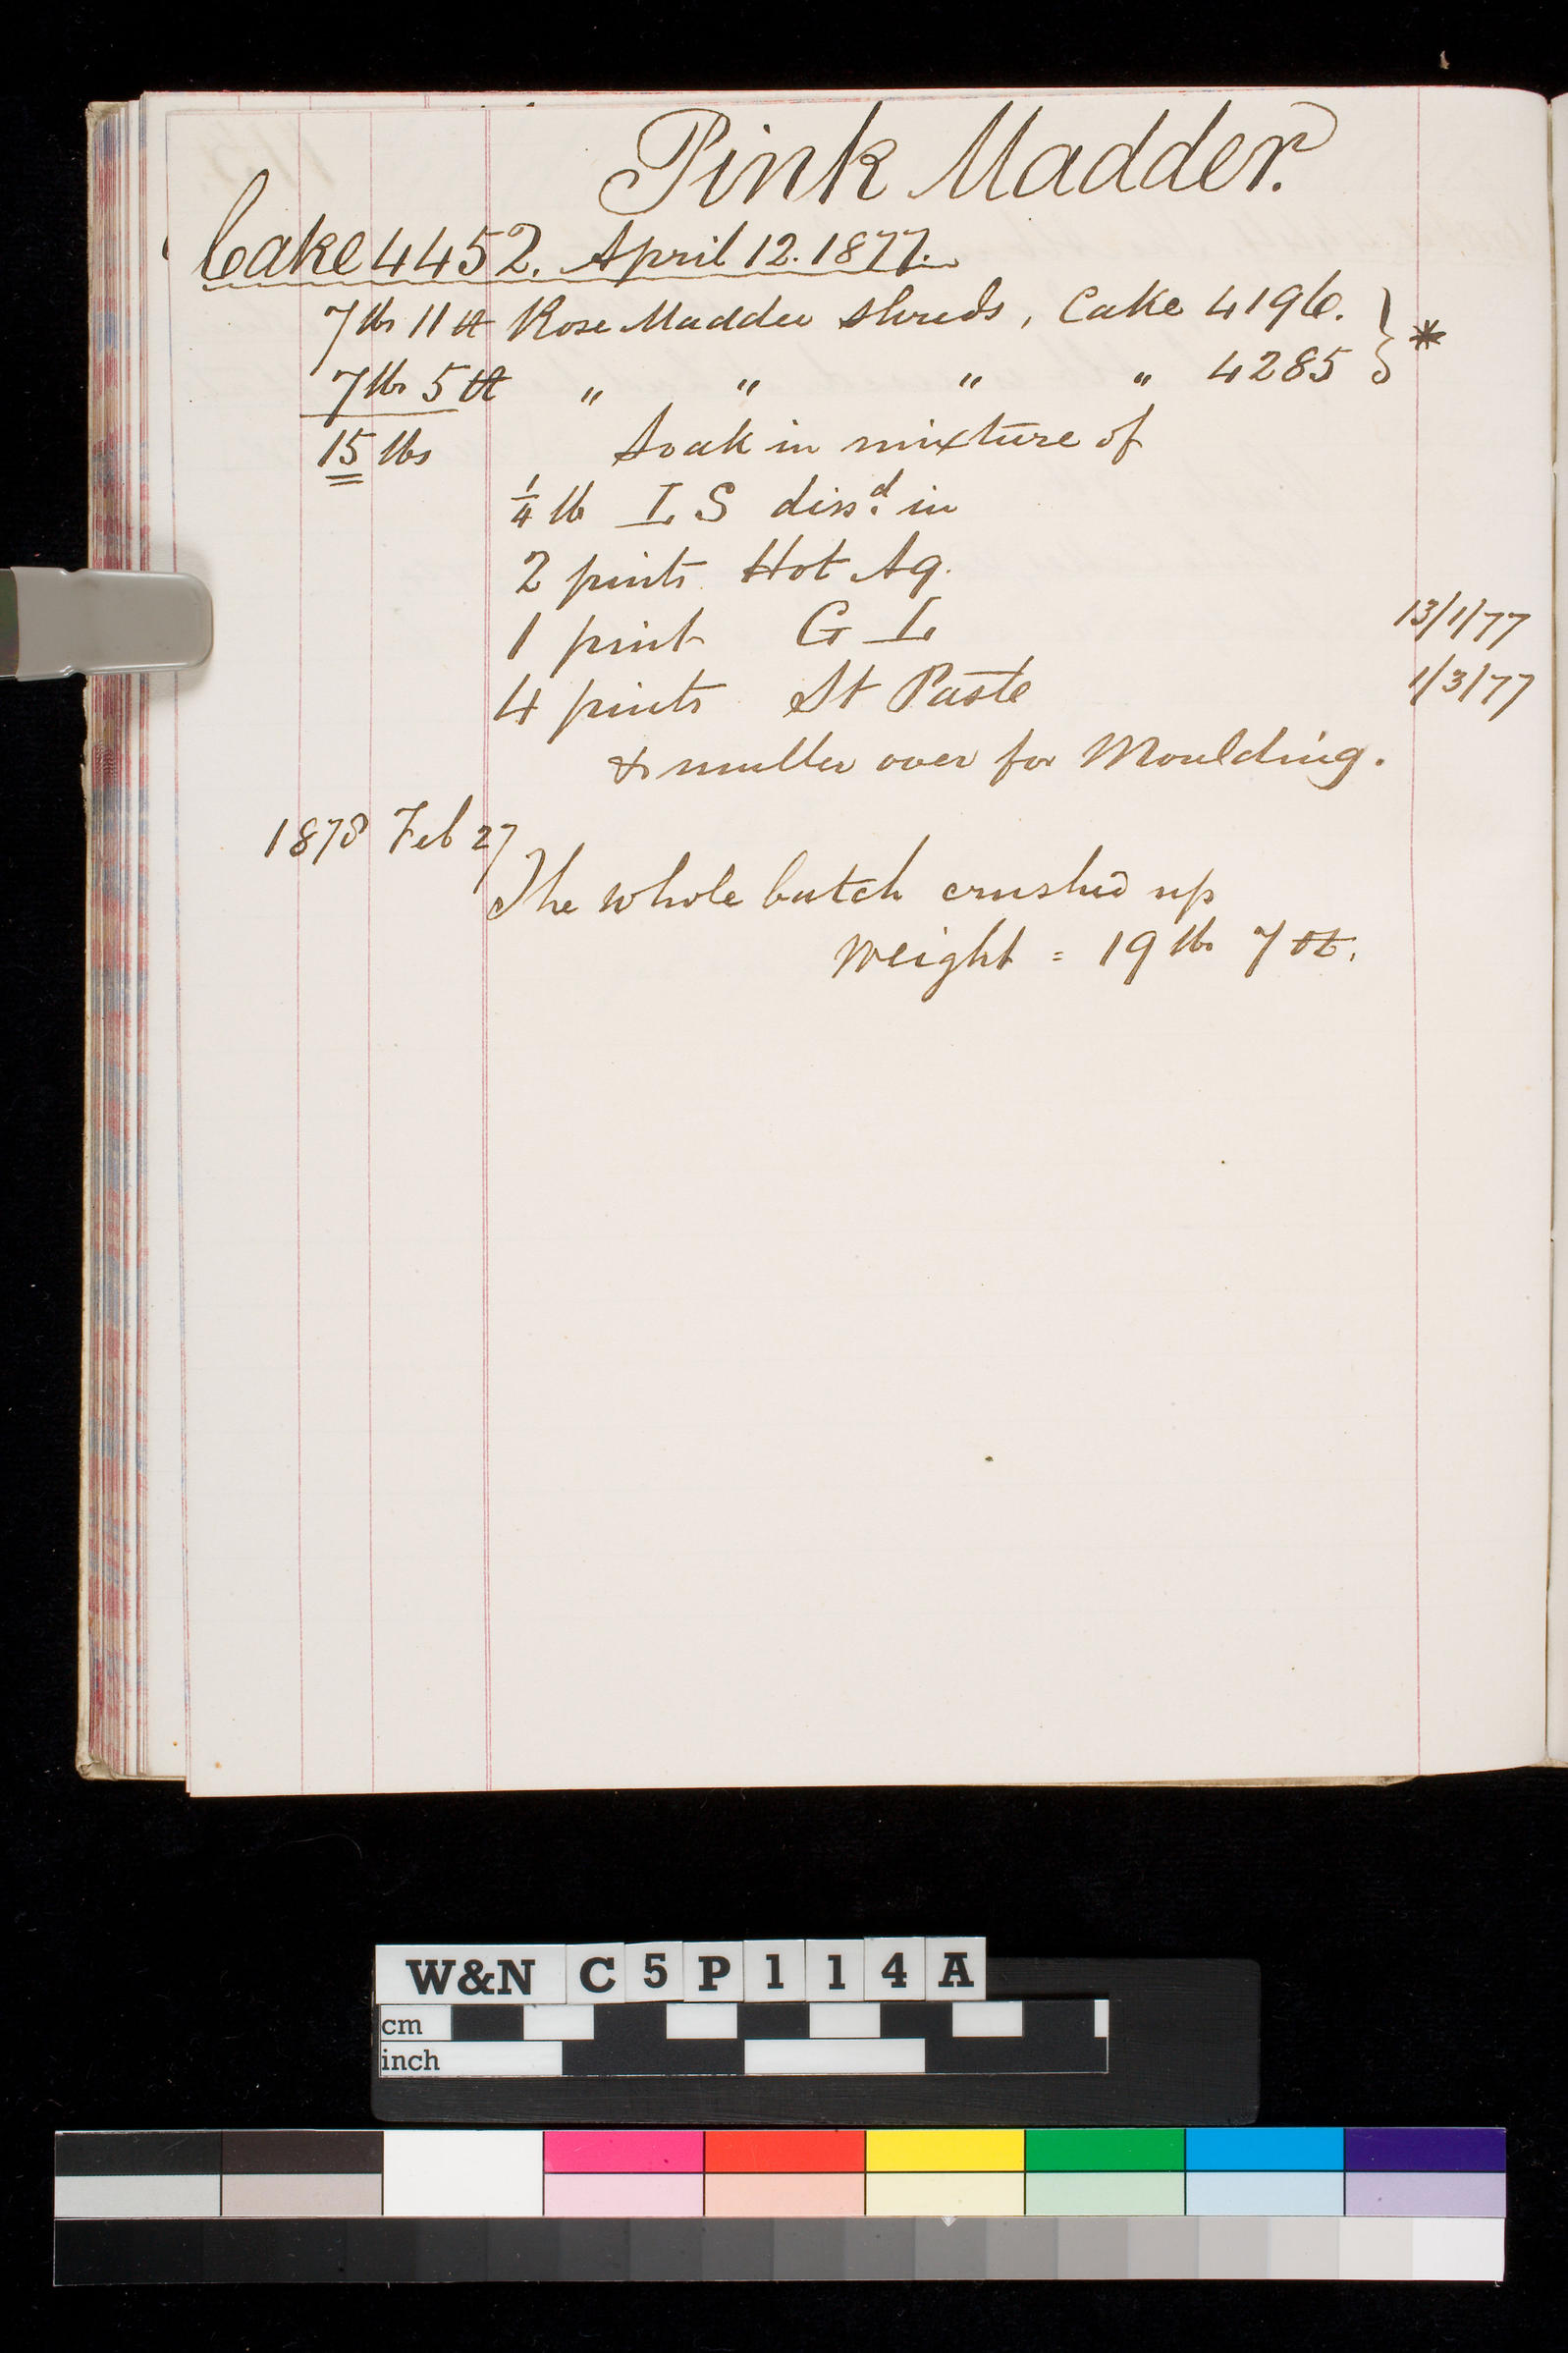 Pink Madder.
Cake 4452. April 12. 1877.
7 lbs 11 oz Rose Madder Shreds, Cake 4196. } *
7 lbs 5 oz " " " " 4285
15 lbs Soak in mixture of
1/4 lb L S dissd. in
2 pints Hot Aq.
1 pint G L 13/1/77
4 pints St Paste 1/3/77
& muller over for Moulding.
1878 Feb 27
The whole batch crushed up
Weight = 19 lbs 7 oz.
W&N C5P114A
cm
inch